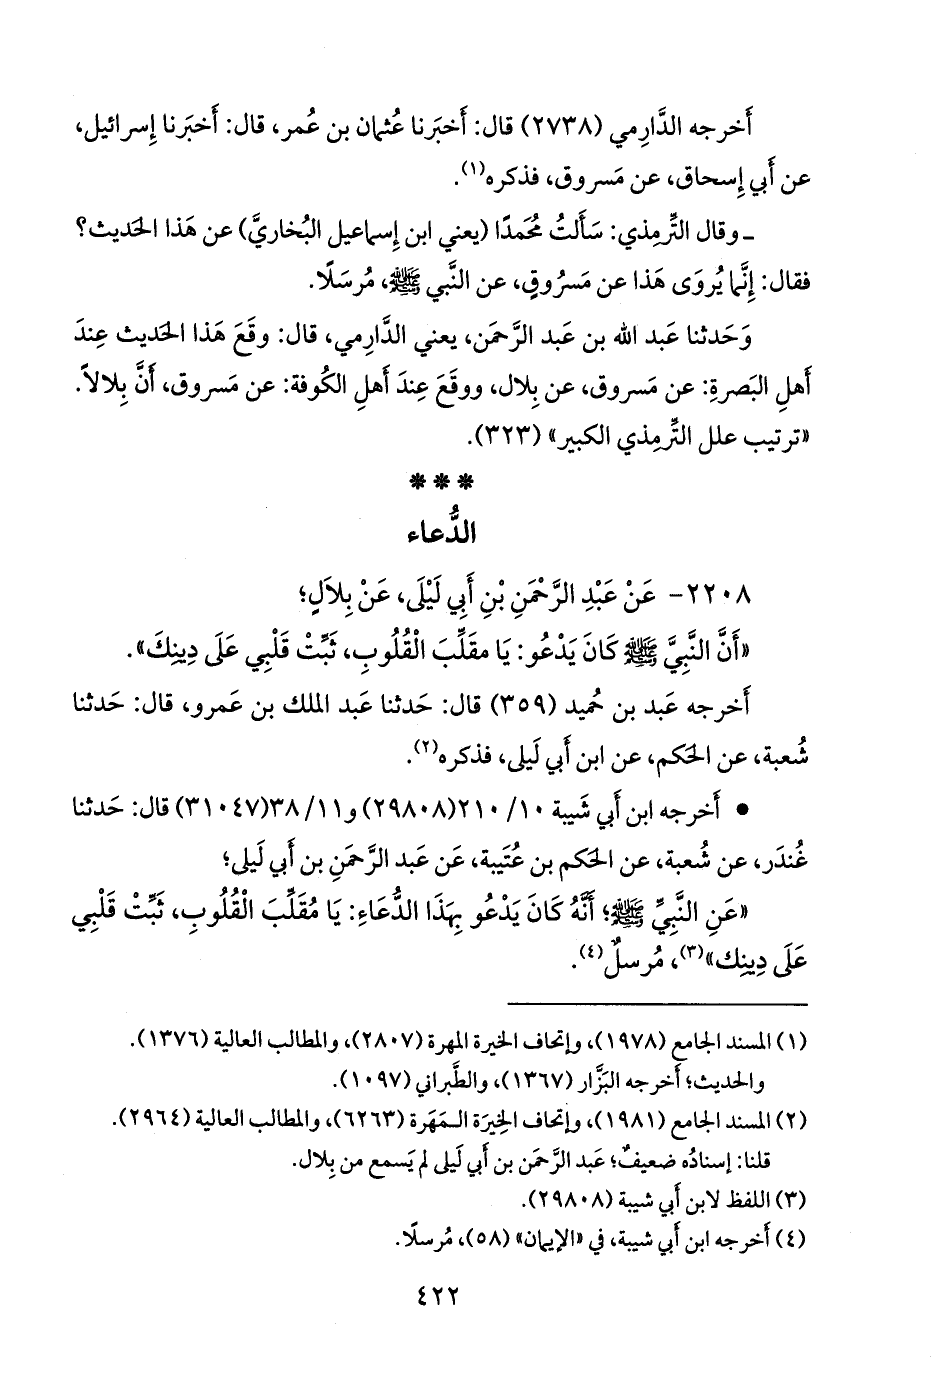 أَخرجه الدَّارِمي (٢٧٣٨) قال: أَخبَرنا عُثمان بن عُمر، قال: أَخبَرنا إِسرائيل،
عن أَبي إِسحاق، عن مَسروق، فذكره(١).
ـ وقال التِّرمِذي: سَأَلتُ مُحَمدًا (يعني ابن إِسماعيل البُخاريَّ) عن هَذا الحَديث؟
فقال: إِنَّما يُروَى هَذا عن مَسرُوقٍ، عن النَّبي ﷺ، مُرسَلًا.
وَحَدثنا عَبد الله بن عَبد الرَّحمَن، يعني الدَّارِمي، قال: وقَعَ هَذا الحَديث عِندَ
أَهلِ البَصرةِ: عن مَسروق، عن بِلال، ووقَعَ عِندَ أَهلِ الكُوفة: عن مَسروق، أَنَّ بِلالاً.
«ترتيب علل التِّرمِذي الكبير» (٣٢٣).
***
الدُّعاء
٢٢٠٨- عَنْ عَبْدِ الرَّحْمَنِ بْنِ أَبِي لَيْلَى، عَنْ بِلاَلٍ؛
«أَنَّ النَّبِيَّ ﷺ كَانَ يَدْعُو: يَا مقَلِّبَ الْقُلُوبِ، ثَبِّتْ قَلْبِي عَلَى دِينِكَ».
أَخرجه عَبد بن حُميد (٣٥٩) قال: حَدثنا عَبد الملك بن عَمرو، قال: حَدثنا
شُعبة، عن الحَكم، عن ابن أَبي لَيلى، فذكره(٢).
• أَخرجه ابن أَبي شَيبة ١٠/ ٢١٠(٢٩٨٠٨) و١١/ ٣٨(٣١٠٤٧) قال: حَدثنا
غُندَر، عن شُعبة، عن الحَكم بن عُتَيبة، عَن عَبد الرَّحمَنِ بن أَبي لَيلى؛
«عَنِ النَّبِيِّ ﷺ؛ أَنَّهُ كَانَ يَدْعُو بِهَذَا الدُّعَاءِ: يَا مُقَلِّبَ الْقُلُوبِ، ثَبِّتْ قَلْبِي
عَلَى دِينِك»(٣)، مُرسلٌ(٤).
(١) المسند الجامع (١٩٧٨)، وإتحاف الخيرة المهرة (٢٨٠٧)، والمطالب العالية (١٣٧٦).
والحديث؛ أَخرجه البَزَّار (١٣٦٧)، والطَّبراني (١٠٩٧).
(٢) المسند الجامع (١٩٨١)، وإتحاف الخِيرَة الـمَهَرة (٦٢٦٣)، والمطالب العالية (٢٩٦٤).
قلنا: إِسنادُه ضعيفٌ؛ عَبد الرَّحمَن بن أَبي لَيلى لم يَسمع من بِلال.
(٣) اللفظ لابن أَبي شيبة (٢٩٨٠٨).
(٤) أَخرجه ابن أَبي شيبة، في «الإيمان» (٥٨)، مُرسلًا.
٤٢٢